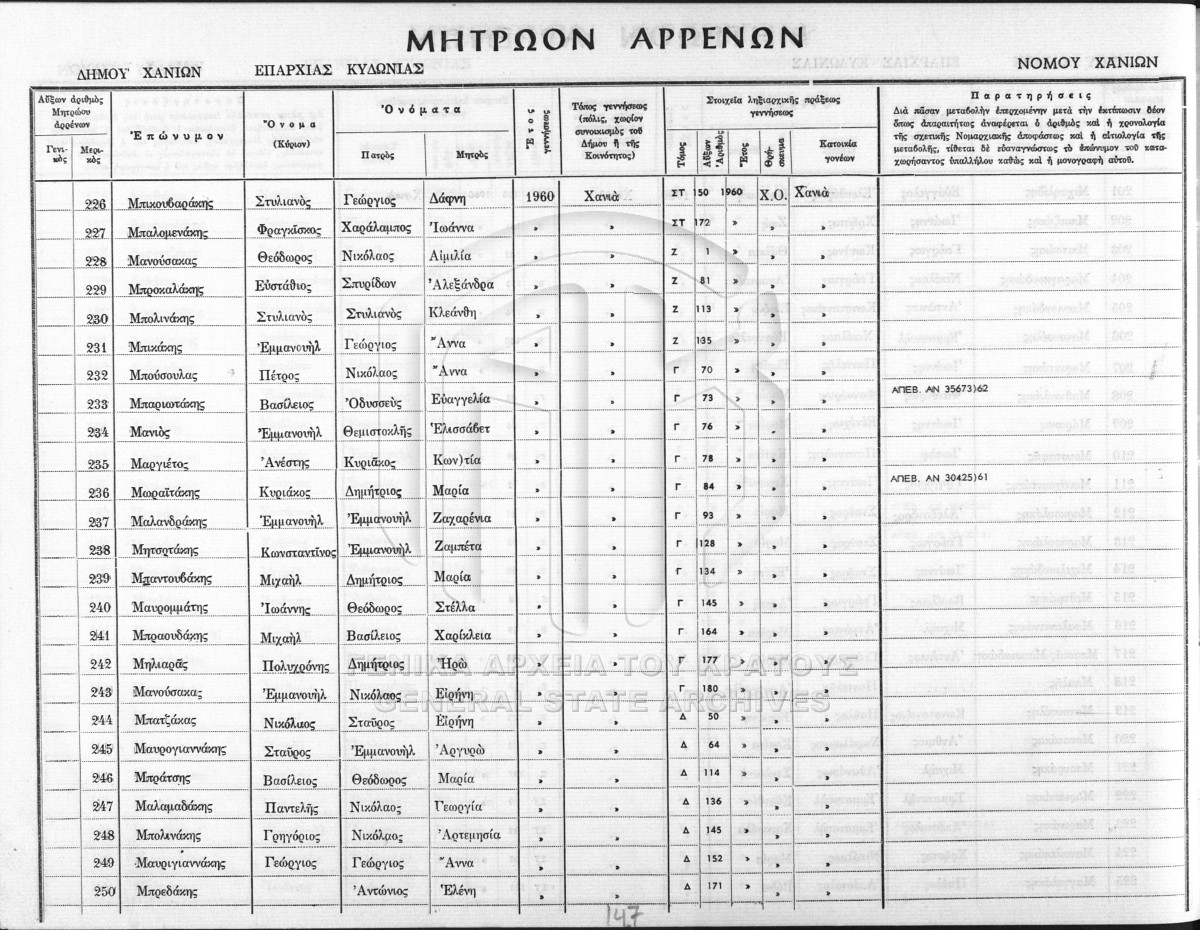 ΜΗΤΡΩΟΝ ΑΡΡΕΝΩΝ
ΔΗΜΟΥ ΧΑΝΙΩΝ ΕΠΑΡΧΙΑΣ ΚΥΔΩΝΙΑΣ ΝΟΜΟΥ ΧΑΝΙΩΝ
Αὔξων ἀριθμὸς Μητρώου ἀρρένων
Γενικὸς Μερικὸς
Ἐπώνυμον
Ὄνομα (Κύριον)
Ὀνόματα
Πατρὸς Μητρὸς
Ἔτος γεννήσεως
Τόπος γεννήσεως (πόλις, χωρίον συνοικισμὸς τοῦ Δήμου ἢ τῆς Κοινότητος)
Στοιχεῖα ληξιαρχικῆς πράξεως γεννήσεως
Τόμος Αὔξων Ἀριθμὸς Ἔτος Θρήσκευμα Κατοικία γονέων
Παρατηρήσεις
Διὰ πᾶσαν μεταβολὴν ἐπερχομένην μετὰ τὴν ἐκτύπωσιν δέον
ὅπως ἀπαραιτήτως ἀναφέρεται ὁ ἀριθμὸς καὶ ἡ χρονολογία
τῆς σχετικῆς Νομαρχιακῆς ἀποφάσεως καὶ ἡ αἰτιολογία τῆς
μεταβολῆς, τίθεται δὲ εὐαναγνώστως τὸ ἐπώνυμον τοῦ κατα-
χωρήσαντος ὑπαλλήλου καθὼς καὶ ἡ μονογραφὴ αὐτοῦ.
226 Μπικουβαράκης Στυλιανὸς Γεώργιος Δάφνη 1960 Χανιὰ ΣΤ 150 1960 Χ.Ο. Χανιὰ
227 Μπαλομενάκης Φραγκῖσκος Χαράλαμπος Ἰωάννα » » ΣΤ 172 » » »
228 Μανούσακας Θεόδωρος Νικόλαος Αἰμιλία » » Ζ 1 » » »
229 Μπροκαλάκης Εὐστάθιος Σπυρίδων Ἀλεξάνδρα » » Ζ 81 » » »
230 Μπολινάκης Στυλιανὸς Στυλιανὸς Κλεάνθη » » Ζ 113 » » »
231 Μπικάκης Ἐμμανουὴλ Γεώργιος Ἄννα » » Ζ 135 » » »
232 Μπούσουλας Πέτρος Νικόλαος Ἄννα » » Γ 70 » » »
233 Μπαριωτάκης Βασίλειος Ὀδυσσεὺς Εὐαγγελία » » Γ 73 » » » ΑΠΕΒ. ΑΝ 35673)62
234 Μανιὸς Ἐμμανουὴλ Θεμιστοκλῆς Ἐλισσάβετ » » Γ 76 » » »
235 Μαργιέτος Ἀνέστης Κυριᾶκος Κων)τία » » Γ 78 » » »
236 Μωραϊτάκης Κυριάκος Δημήτριος Μαρία » » Γ 84 » » » ΑΠΕΒ. ΑΝ 30425)61
237 Μαλανδράκης Ἐμμανουὴλ Ἐμμανουὴλ Ζαχαρένια » » Γ 93 » » »
238 Μητσοτάκης Κωνσταντῖνος Ἐμμανουὴλ Ζαμπέτα » » Γ 128 » » »
239 Μπαντουβάκης Μιχαὴλ Δημήτριος Μαρία » » Γ 134 » » »
240 Μαυρομμάτης Ἰωάννης Θεόδωρος Στέλλα » » Γ 145 » » »
241 Μπραουδάκης Μιχαὴλ Βασίλειος Χαρίκλεια » » Γ 164 » » »
242 Μηλιαρᾶς Πολυχρόνης Δημήτριος Ἡρὼ » » Γ 177 » » »
243 Μανούσακας Ἐμμανουὴλ Νικόλαος Εἰρήνη » » Γ 180 » » »
244 Μπατζάκας Νικόλαος Σταῦρος Εἰρήνη » » Δ 50 » » »
245 Μαυρογιαννάκης Σταῦρος Ἐμμανουὴλ Ἀργυρὼ » » Δ 64 » » »
246 Μπράτσης Βασίλειος Θεόδωρος Μαρία » » Δ 114 » » »
247 Μαλαμαδάκης Παντελῆς Νικόλαος Γεωργία » » Δ 136 » » »
248 Μπολινάκης Γρηγόριος Νικόλαος Ἀρτεμησία » » Δ 145 » » »
249 Μαυριγιαννάκης Γεώργιος Γεώργιος Ἄννα » » Δ 152 » » »
250 Μπρεδάκης Ἀντώνιος Ἑλένη » » Δ 171 » » »
ΓΕΝΙΚΑ ΑΡΧΕΙΑ ΤΟΥ ΚΡΑΤΟΥΣ
GENERAL STATE ARCHIVES
147